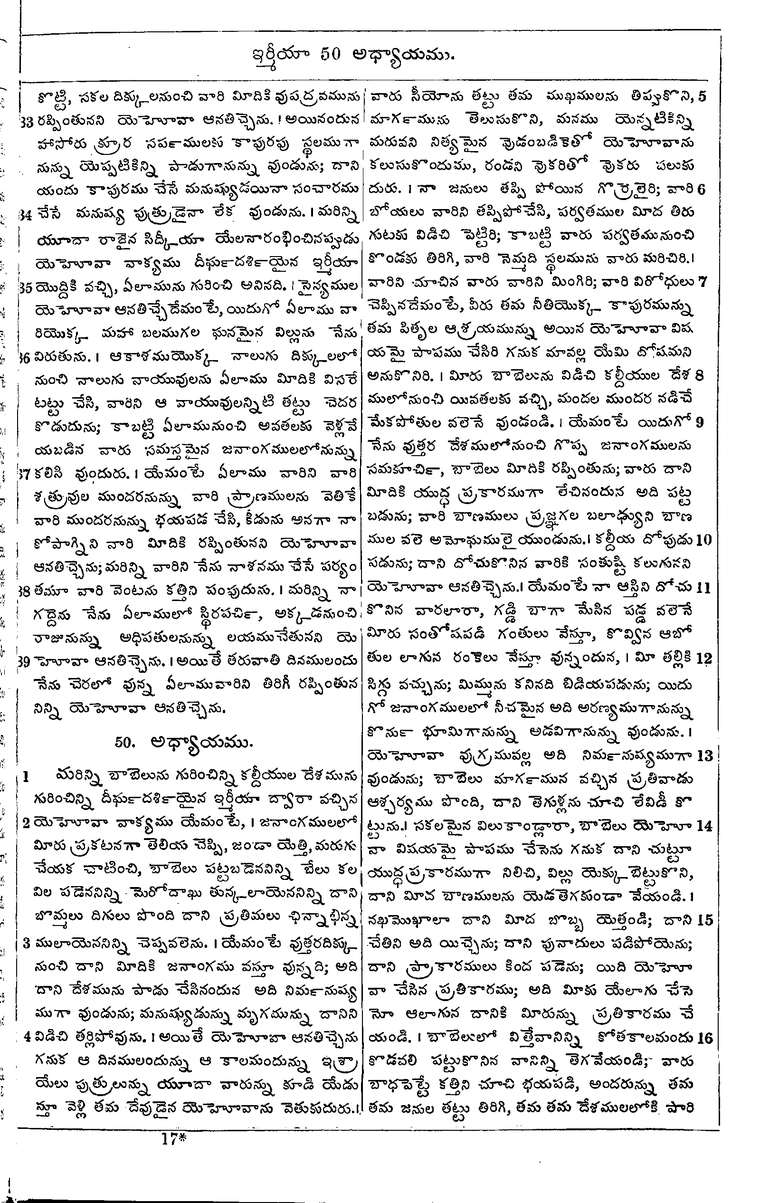 ఇర్మీయా 50 అధ్యాయము.
కొట్టి, సకల దిక్కులనుంచి వారి మీదికి వుపద్రవమును
33 రప్పింతునని యెహోవా ఆనతిచ్చెను. । అయినందున
హాసోరు క్రూర సర్పములకు కాపురపు స్థలముగా
నున్ను యెప్పటికిన్ని పాడుగానున్ను వుండును; దాని
యందు కాపురము చేసే మనుష్యుడయినా సంచారము
34 చేసే మనుష్య పుత్రుడైనా లేక వుండును. । మరిన్ని
యూదా రాజైన సిద్కీయా యేలనారంభించినప్పుడు
యెహోవా వాక్యము దీర్ఘదర్శియైన ఇర్మీయా
35 యొద్దికి వచ్చి, ఏలామును గురించి అనినది. । సైన్యముల
యెహోవా ఆనతిచ్చేదేమంటే, యిదుగో ఏలాము వా
రియొక్క మహా బలముగల ఘనమైన విల్లును నేను
36 విరుతును. । ఆకాశముయొక్క నాలుగు దిక్కులలో
నుంచి నాలుగు వాయువులను ఏలాము మీదికి విసరే
టట్టు చేసి, వారిని ఆ వాయువులన్నిటి తట్టు చెదర
కొడుదును; కాబట్టి ఏలామునుంచి అవతలకు వెళ్లవే
యబడిన వారు సమస్తమైన జనాంగములలోనున్ను
37 కలిసి వుందురు. । యేమంటే ఏలాము వారిని వారి
శత్రువుల ముందరనున్ను వారి ప్రాణములను వెతికే
వారి ముందరనున్ను భయపడ చేసి, కీడును అనగా నా
కోపాగ్నిని వారి మీదికి రప్పింతునని యెహోవా
ఆనతిచ్చెను; మరిన్ని వారిని నేను నాశనము చేసే పర్యం
38 తమూ వారి వెంటను కత్తిని పంపుదును. । మరిన్ని నా
గద్దెను నేను ఏలాములో స్థిరపర్చి, అక్కడనుంచి
రాజునున్ను అధిపతులనున్ను లయముచేతునని యె
39 హోవా ఆనతిచ్చెను. । అయితే తరువాతి దినములందు
నేను చెరలో వున్న ఏలామువారిని తిరిగీ రప్పింతున
నిన్ని యెహోవా ఆనతిచ్చెను.
50. అధ్యాయము.
1 మరిన్ని బాబెలును గురించిన్ని కల్దీయుల దేశమును
గురించిన్ని దీర్ఘదర్శియైన ఇర్మీయా ద్వారా వచ్చిన
2 యెహోవా వాక్యము యేమంటే, । జనాంగములలో
మీరు ప్రకటనగా తెలియ చెప్పి, జండా యెత్తి, మరుగు
చేయక చాటించి, బాబెలు పట్టబడెననిన్ని బేలు కల
విల పడెననిన్ని మెరోదాఖు తున్కలాయెననిన్ని దాని
బొమ్మలు దిగులు పొంది దాని ప్రతిమలు ఛిన్నాభిన్న
3 ములాయెననిన్ని చెప్పవలెను. । యేమంటే వుత్తరదిక్కు
నుంచి దాని మీదికి జనాంగము వస్తూ వున్నది; అది
దాని దేశమును పాడు చేసినందున అది నిర్మనుష్య
ముగా వుండును; మనుష్యుడున్ను మృగమున్ను దానిని
4 విడిచి తర్లిపోవును. । అయితే యెహోవా ఆనతిచ్చెను
గనుక ఆ దినములందున్ను ఆ కాలమందున్ను ఇశ్రా
యేలు పుత్రులున్ను యూదా వారున్ను కూడి యేడు
స్తూ వెళ్లి తమ దేవుడైన యెహోవాను వెతుకుదురు. ।
వారు సీయోను తట్టు తమ ముఖములను తిప్పుకొని, 5
మార్గమును తెలుసుకొని, మనము యెన్నటికిన్ని
మరువని నిత్యమైన వుడంబడికెతో యెహోవాను
కలుసుకొందుము, రండని వొకరితో వొకరు పలుకు
దురు. । నా జనులు తప్పి పోయిన గొర్రెలైరి; వారి 6
బోయలు వారిని తప్పిపోచేసి, పర్వతముల మీద తిరు
గుటకు విడిచి పెట్టిరి; కాబట్టి వారు పర్వతమునుంచి
కొండకు తిరిగి, వారి నెమ్మది స్థలమును వారు మరిచిరి. ।
వారిని చూచిన వారు వారిని మింగిరి; వారి విరోధులు 7
చెప్పినదేమంటే, వీరు తమ నీతియొక్క కాపురమున్ను
తమ పితృల ఆశ్రయమున్ను అయిన యెహోవా విష
యమై పాపము చేసిరి గనుక మావల్ల యేమి దోషమని
అనుకొనిరి. । మీరు బాబెలును విడిచి కల్దీయుల దేశ 8
ములోనుంచి యివతలకు వచ్చి, మందల ముందర నడిచే
మేకపోతుల వలెనే వుండండి. । యేమంటే యిదుగో 9
నేను వుత్తర దేశములోనుంచి గొప్ప జనాంగములను
సమకూర్చి, బాబెలు మీదికి రప్పింతును; వారు దాని
మీదికి యుద్ధ ప్రకారముగా లేచినందున అది పట్ట
బడును; వారి బాణములు ప్రజ్ఞగల బలాఢ్యుని బాణ
ముల వలె అమోఘములై యుండును. । కల్దీయ దోపుడు 10
పడును; దాని దోచుకొనిన వారికి సంతుష్టి కలుగునని
యెహోవా ఆనతిచ్చెను. । యేమంటే నా ఆస్తిని దోచు 11
కొనిన వారలారా, గడ్డి బాగా మేసిన పడ్డ వలెనే
మీరు సంతోషపడి గంతులు వేస్తూ, కొవ్విన ఆబో
తుల లాగున రంకెలు వేస్తూ వున్నందున, । మీ తల్లికి 12
సిగ్గు వచ్చును; మిమ్మును కనినది బిడియపడును; యిదు
గో జనాంగములలో నీచమైన అది అరణ్యముగానున్ను
కొనుకు భూమిగానున్ను అడవిగానున్ను వుండును. ।
యెహోవా వుగ్రమువల్ల అది నిర్మనుష్యముగా 13
వుండును; బాబెలు మార్గమున వచ్చిన ప్రతివాడు
ఆశ్చర్యము పొంది, దాని తెగుళ్లను చూచి లేవిడీ కొ
ట్టును. । సకలమైన విలుకాండ్లారా, బాబెలు యెహో 14
వా విషయమై పాపము చేసెను గనుక దాని చుట్టూ
యుద్ధప్రకారముగా నిలిచి, విల్లు యెక్కుబెట్టుకొని,
దాని మీద బాణములను యెడతెగకుండా వేయండి. ।
నఖముఖాలా దాని మీద బొబ్బ యెత్తండి; దాని 15
చేతిని అది యిచ్చెను; దాని పునాదులు పడిపోయెను;
దాని ప్రాకారములు కింద పడెను; యిది యెహో
వా చేసిన ప్రతికారము; అది మీకు యేలాగు చేసె
నో ఆలాగున దానికి మీరున్ను ప్రతికారము చే
యండి. । బాబెలులో విత్తేవానిన్ని కోతకాలమందు 16
కొడవలి పట్టుకొనిన వానిన్ని తెగవేయండి; వారు
బాధపెట్టే కత్తిని చూచి భయపడి, అందరున్ను తమ
తమ జనుల తట్టు తిరిగి, తమ తమ దేశములలోకి పారి
17*